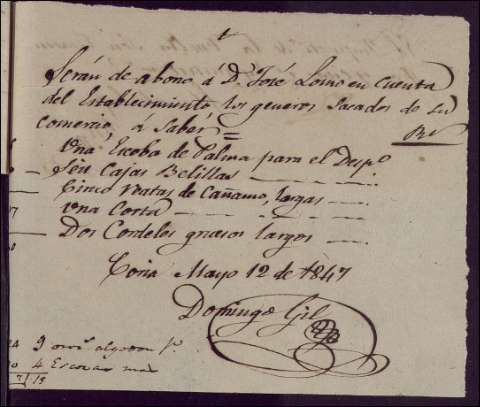 Serán de abono á Dn. José Lomo en cuenta
del Establecimiento los generos Sacados de su
comercio, á Saber = Rs
Una Escoba de Palma para el Desp.o
Seis Cajas Belillas
Cinco reatas de Cañamo, largas
Una Corta
Dos Cordeles gruesos largos
Coria Mayo 12 de 1847
Domingo Gil
9 algodon pa
4 Escobas